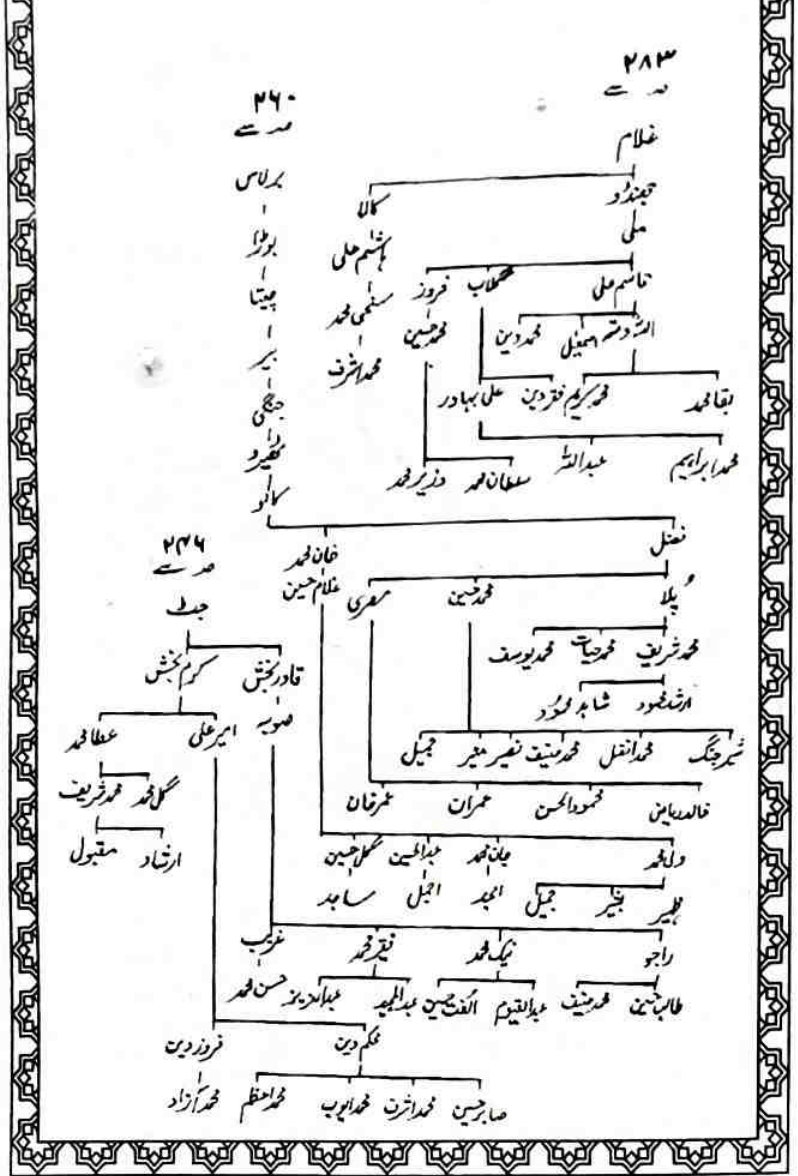 ۲۸۳
صہ سے
غلام
جھنڈو کالا
ملی ہاشم علی
قاسم علی گلاب فروز سخی محمد
اللہ دتہ اسمعیل محمد دین محمد حسین محمد اشرف
بقا محمد محمد کریم فقر دین علی بہادر
محمد ابراہیم عبداللہ سلطان محمد وزیر محمد
۲۶۰
صہ سے
برلاس
بوڑا
چیتا
بیر
جنگی
کالو
فضل خان محمد
غلام حسین
پُلا محمد حسین مصری
محمد شریف محمد حیات محمد یوسف
ارشد محمود شاہد محمود
شیر جنگ محمد افضل محمد منیف نصیر جمیل
خالد ریاض محمود الحسن عمران عمر فان
ولی محمد جان محمد عبدالحسین گل حسین
ظہیر بشیر جمیل امجد اجمل ساجد
۲۴۶
صہ سے
قادر بخش کرم بخش
صوبہ امیر علی عطا محمد
گل محمد محمد شریف
ارشاد مقبول
راجو نیک محمد فقیر محمد غریب
طالب حسین محمد منیف عبدالقیوم الفت حسین عبدالمجید عبدالعزیز حسن محمد
حکم دین فروز دین
صابر حسین محمد اشرف محمد ایوب محمد اعظم محمد آزاد